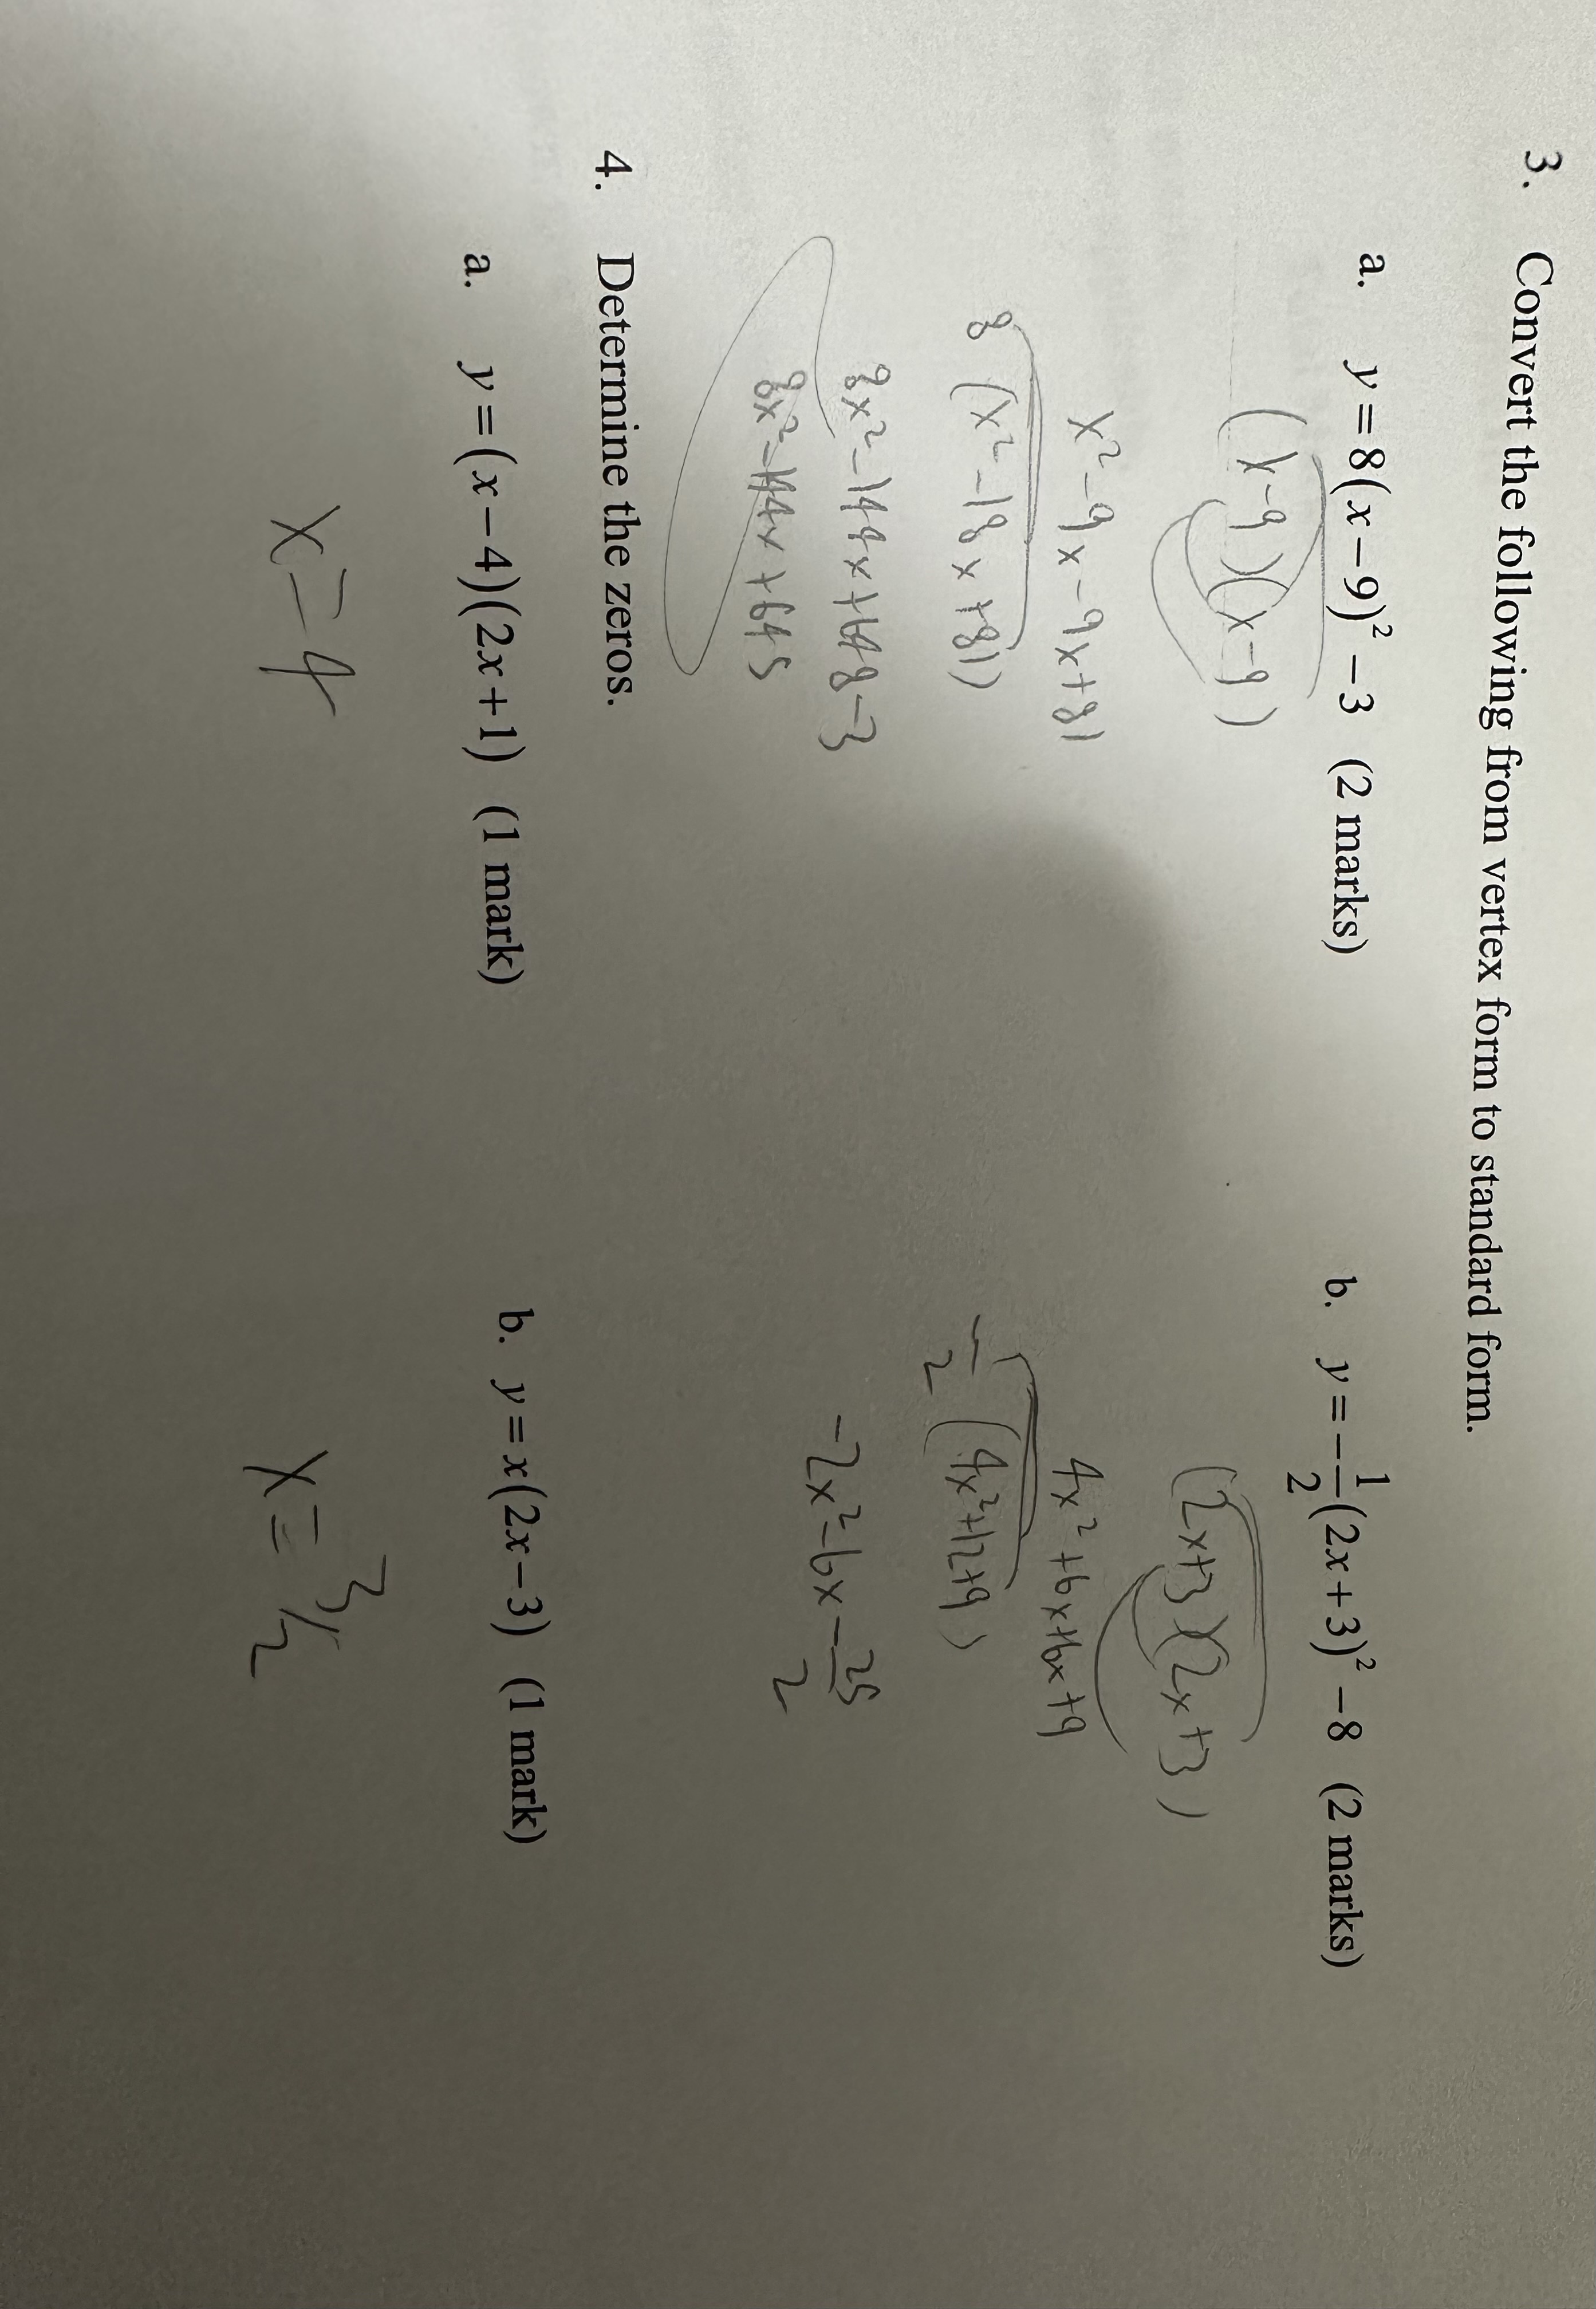 3. Convert the following from vertex form to standard form.
a. y = 8(x − 9)² − 3 (2 marks)
(x-9)(x-9)
x² - 9x - 9x + 81
8 (x² - 18x + 81)
8x² - 144x + 648 - 3
8x² - 144x + 645
b. y = −1/2(2x + 3)² − 8 (2 marks)
(2x+3)(2x+3)
4x² + 6x + 6x + 9
-1/2 (4x² + 12 + 9)
-2x² - 6x - 25/2
4. Determine the zeros.
a. y = (x − 4)(2x + 1) (1 mark)
x = 4
b. y = x(2x − 3) (1 mark)
x = 3/2